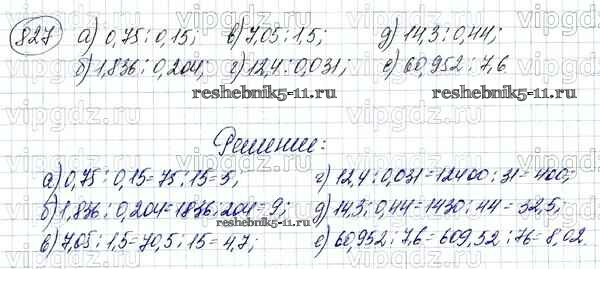 827 а) 0,75 : 0,15; в) 7,05 : 1,5; д) 14,3 : 0,44;
б) 1,836 : 0,204; г) 12,4 : 0,031; е) 60,952 : 7,6
reshebnik5-11.ru reshebnik5-11.ru
Решение:
а) 0,75 : 0,15 = 75 : 15 = 5; г) 12,4 : 0,031 = 12400 : 31 = 400;
б) 1,836 : 0,204 = 1836 : 204 = 9; д) 14,3 : 0,44 = 1430 : 44 = 32,5;
reshebnik5-11.ru
в) 7,05 : 1,5 = 70,5 : 15 = 4,7; е) 60,952 : 7,6 = 609,52 : 76 = 8,02